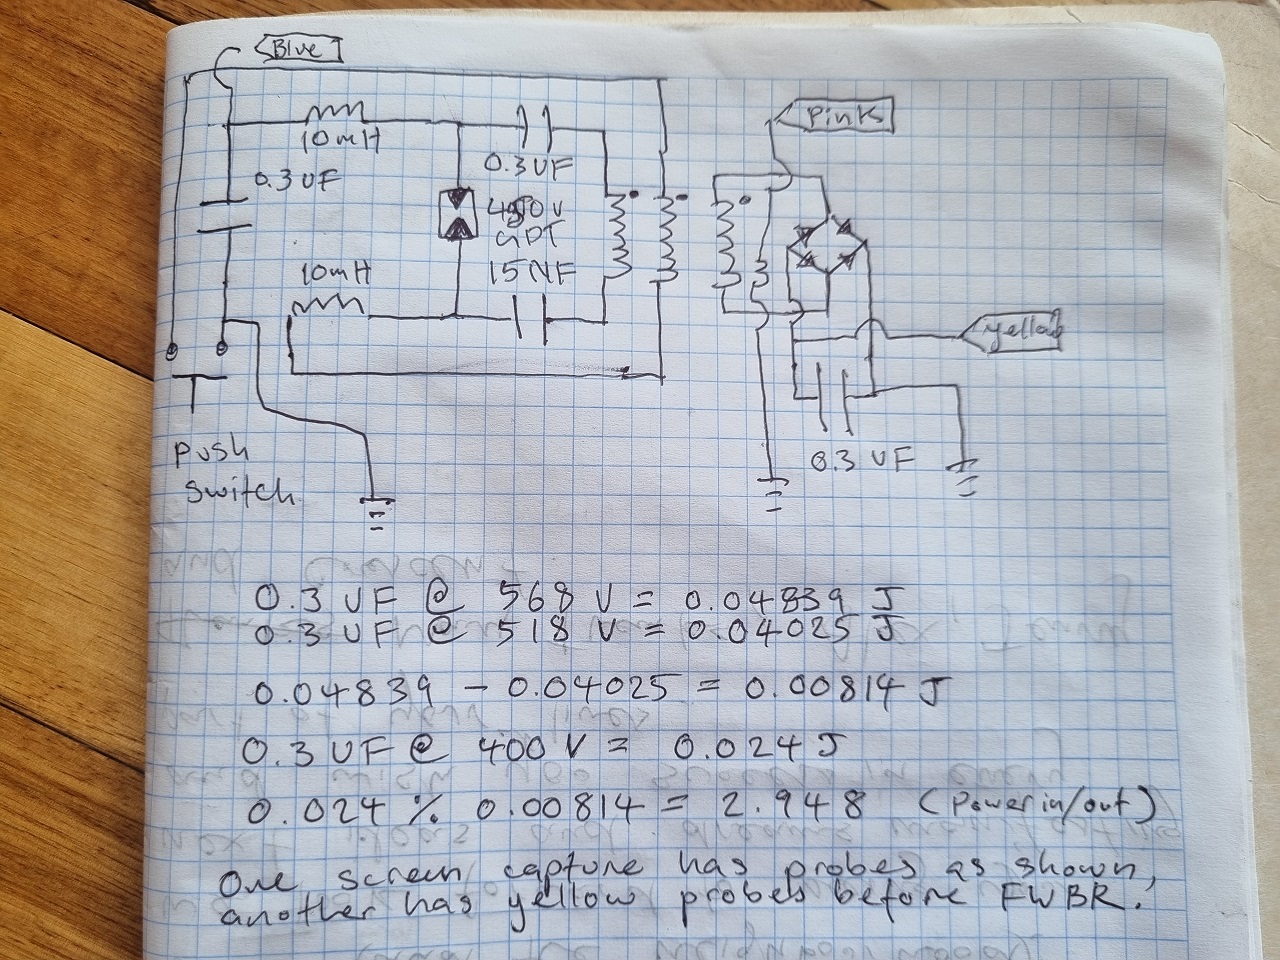 Blue
Pink
10mH
0.3UF
0.3UF
GDT
10mH
15NF
yellow
0.3 UF
Push
Switch
0.3 UF @ 568 V = 0.04839 J
0.3 UF @ 518 V = 0.04025 J
0.04839 - 0.04025 = 0.00814 J
0.3 UF @ 400 V = 0.024 J
0.024 % 0.00814 = 2.948 (Power in/out)
One screen capture has probes as shown,
another has yellow probes before FWBR.